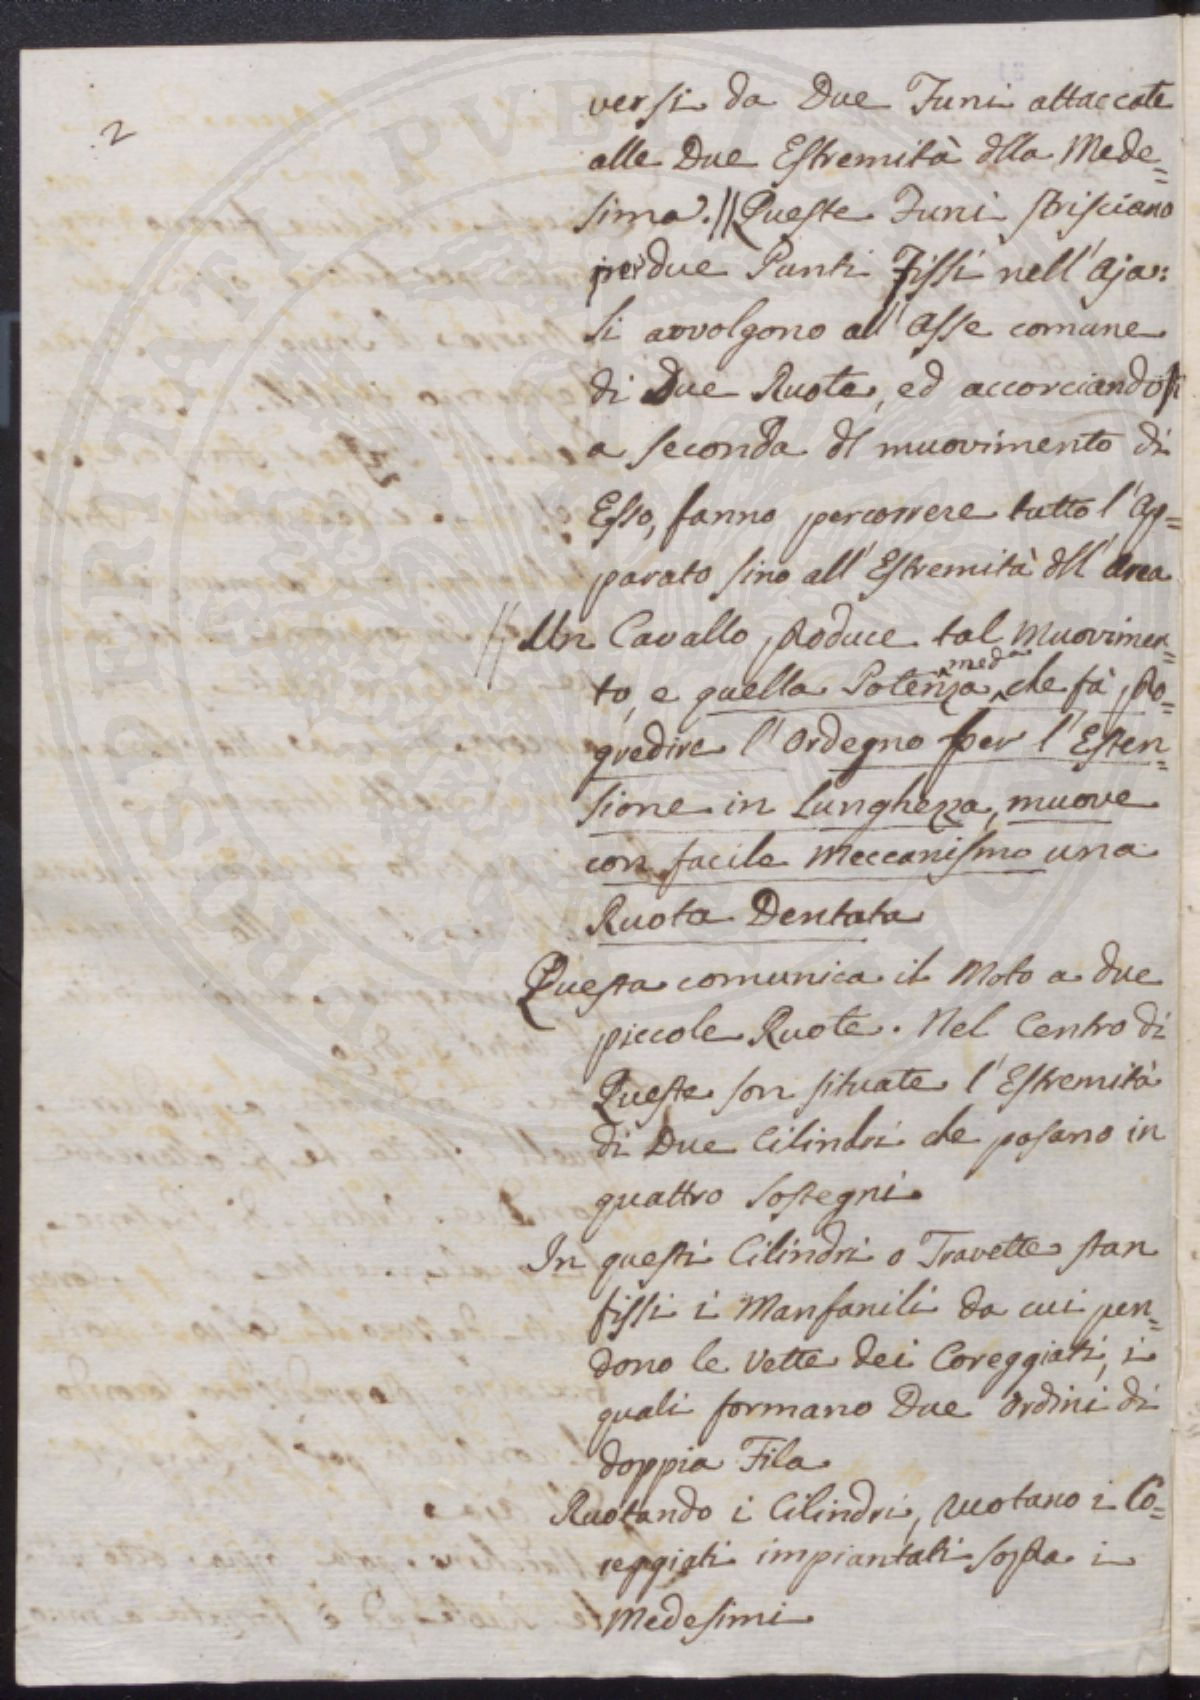 2
versi da Due Funi attaccate
alle Due Estremità dlla Mede=
sima.// Queste Funi strisciano
per due Punti Fissi nell'Aja:
si avvolgono all'Asse comune
di Due Ruote, ed accorciandosi
a seconda dl muovimento di
Esso, fanno percorrere tutto l'Ap=
parato sino all'Estremità dll'area
// Un Cavallo produce tal Muovimen=
to, e quella Potenza meda che fà pro=
gredire l'Ordegno per l'Esten=
sione in Lunghezza, muove
con facile Meccanismo una
Ruota Dentata
Questa comunica il Moto a due
piccole Ruote. Nel Centro di
Queste son situate l'Estremità
di Due Cilindri che posano in
quattro Sostegni
In questi Cilindri o Travette stan
fissi i Manfanili da cui pen=
dono le Vette dei Coreggiati, i
quali formano Due Ordini di
doppia Fila
Ruotando i Cilindri, ruotano i Co=
reggiati impiantati sopra i
Medesimi
PROSPERITATI PUBLICAE